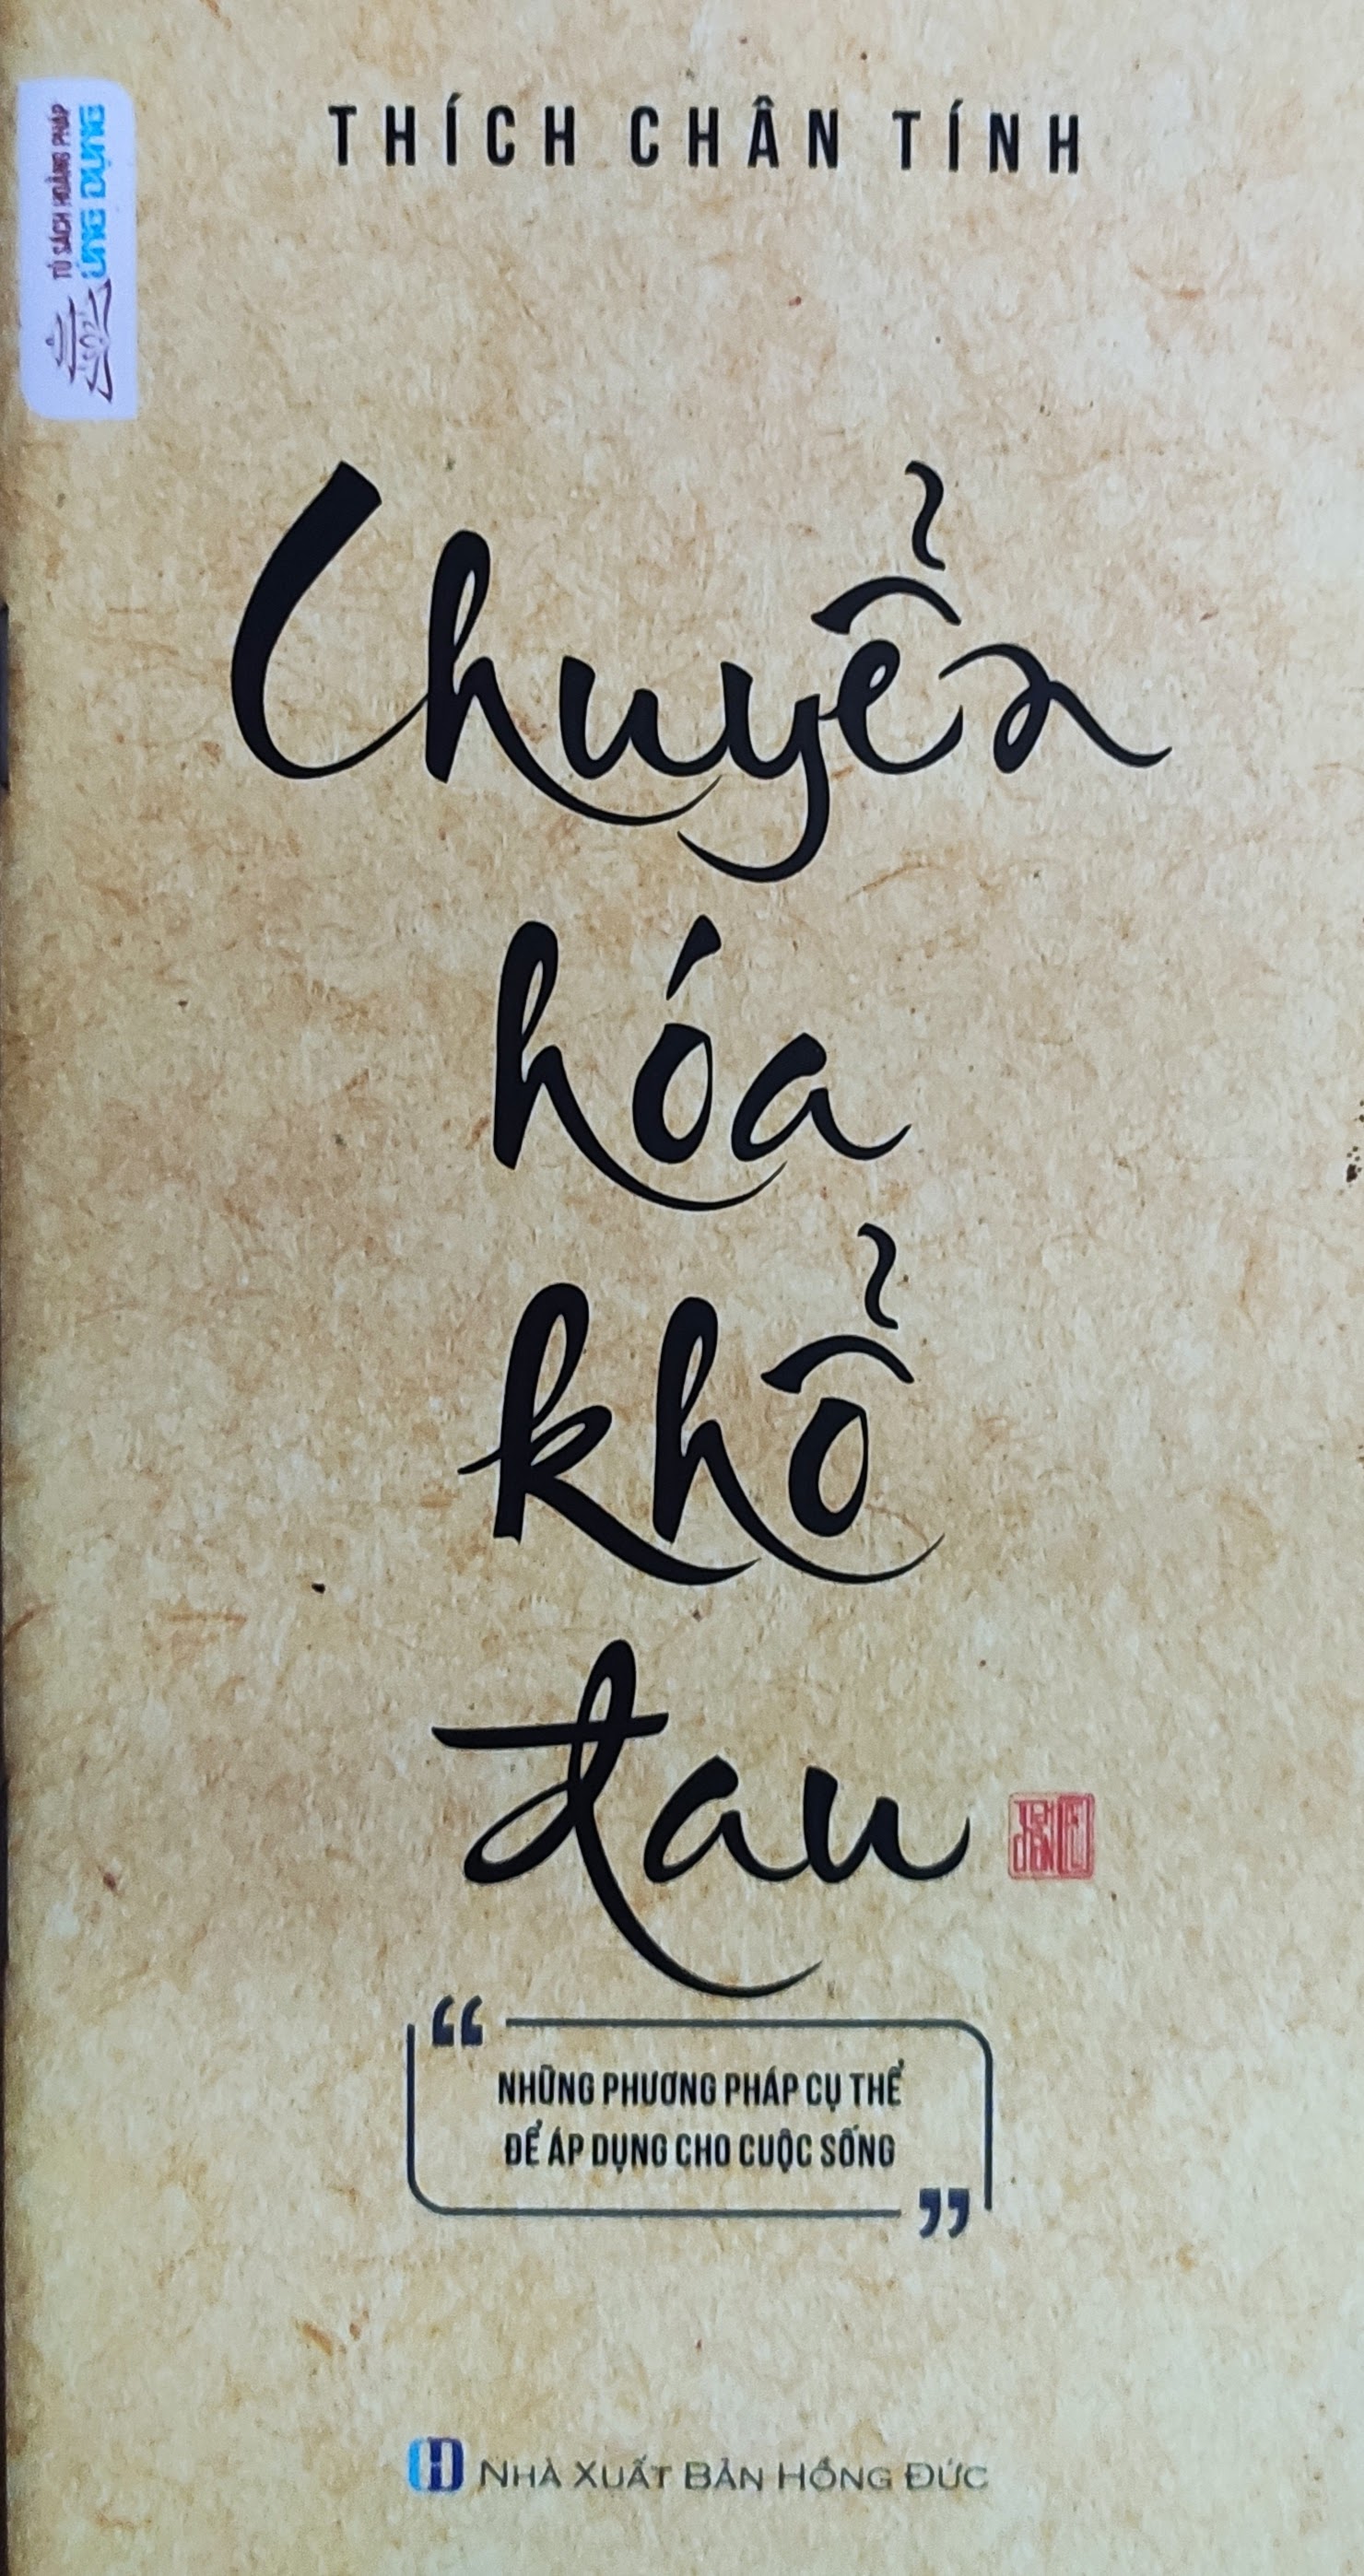 THÍCH CHÂN TÍNH
TỦ SÁCH HOẰNG PHÁP
ỨNG DỤNG
Chuyển
hóa
khổ
đau
“NHỮNG PHƯƠNG PHÁP CỤ THỂ
ĐỂ ÁP DỤNG CHO CUỘC SỐNG”
NHÀ XUẤT BẢN HỒNG ĐỨC